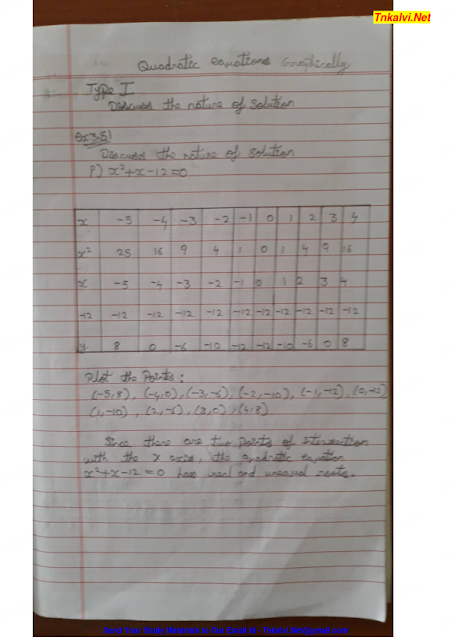 Tnkalvi.Net
Quadratic equations Graphically
Type I
Discuss the nature of solution
Ex 3.15
Discuss the nature of solution
x²+x-12=0
x -5 -4 -3 -2 -1 0 1 2 3 4
x² 25 16 9 4 1 0 1 4 9 16
x -5 -4 -3 -2 -1 0 1 2 3 4
-12 -12 -12 -12 -12 -12 -12 -12 -12 -12 -12
y 8 0 -6 -10 -12 -12 -10 -6 0 8
Plot the Points:
(-5,8), (-4,0), (-3,-6), (-2,-10), (-1,-12), (0,-12)
(1,-10), (2,-6), (3,0), (4,8)
Since there are two points of intersection
with the x axis, the quadratic equation
x²+x-12=0 has real and unequal roots.